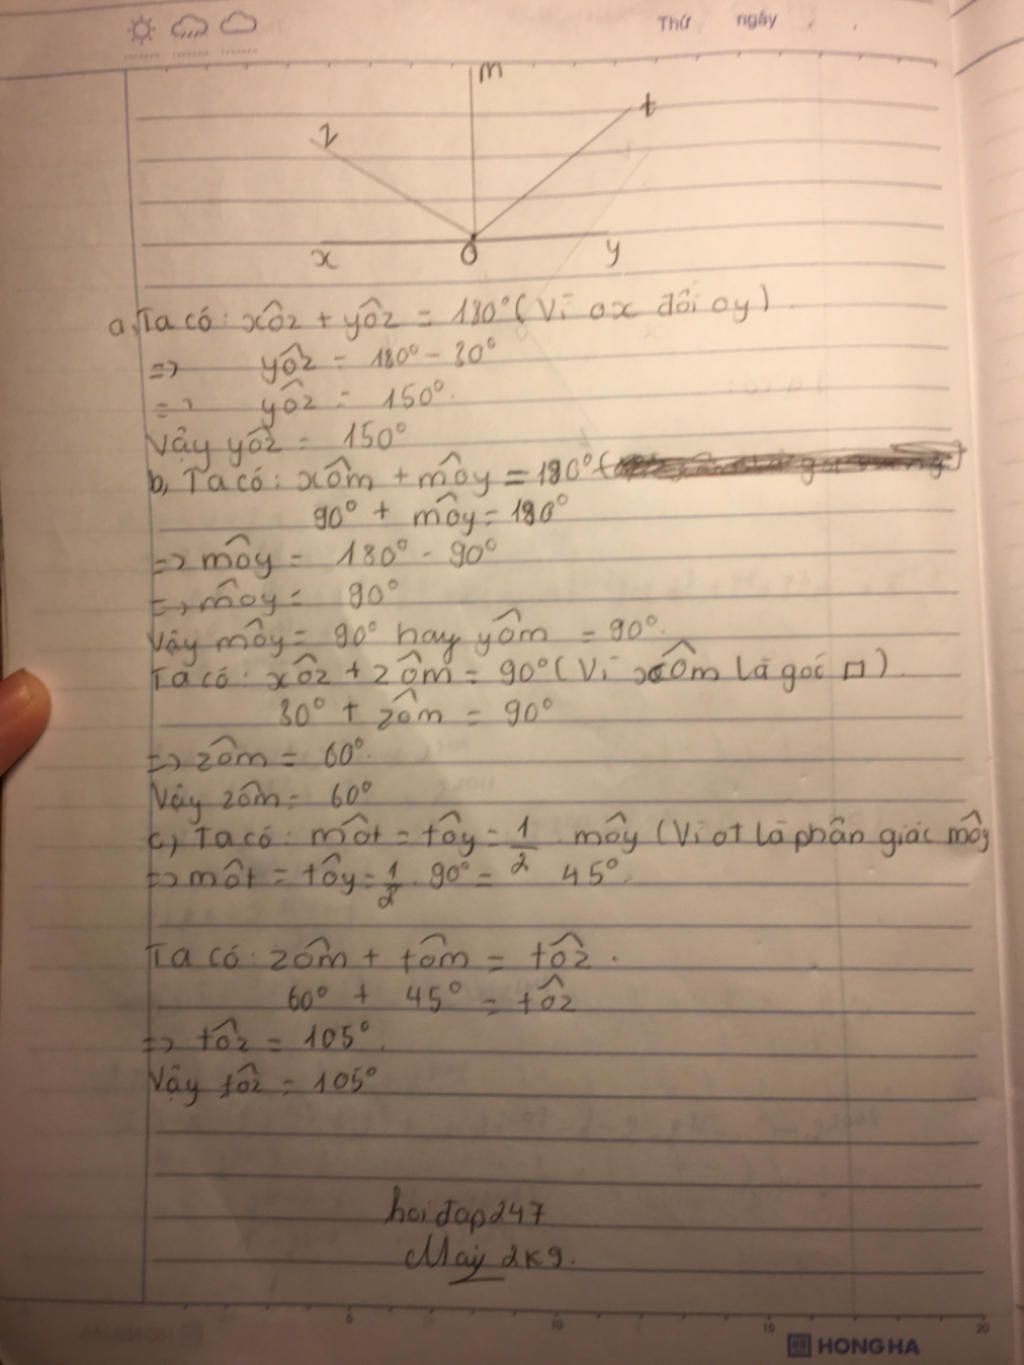 Thứ ngày
m
z
t
x
O
y
a, Ta có: xÔz + yÔz = 180° (Vì ox đối oy)
=> yÔz = 180° - 30°
=> yÔz = 150°.
Vậy yÔz = 150°
b, Ta có: xÔm + mÔy = 180° (
90° + mÔy = 180°
=> mÔy = 180° - 90°
=> mÔy = 90°
Vậy mÔy = 90° hay yÔm = 90°.
Ta có: xÔz + zÔm = 90° (Vì xÔm là góc □)
30° + zÔm = 90°
=> zÔm = 60°.
Vậy zÔm = 60°
c, Ta có: mÔt = tÔy = 1/2 . mÔy (Vì ot là phân giác mÔy
=> mÔt = tÔy = 1/2 . 90° = 45°.
Ta có: zÔm + tÔm = tÔz.
60° + 45° = tÔz
=> tÔz = 105°.
Vậy tÔz = 105°
hoidap247
May 2k9.
5 10 15 20
HONG HA